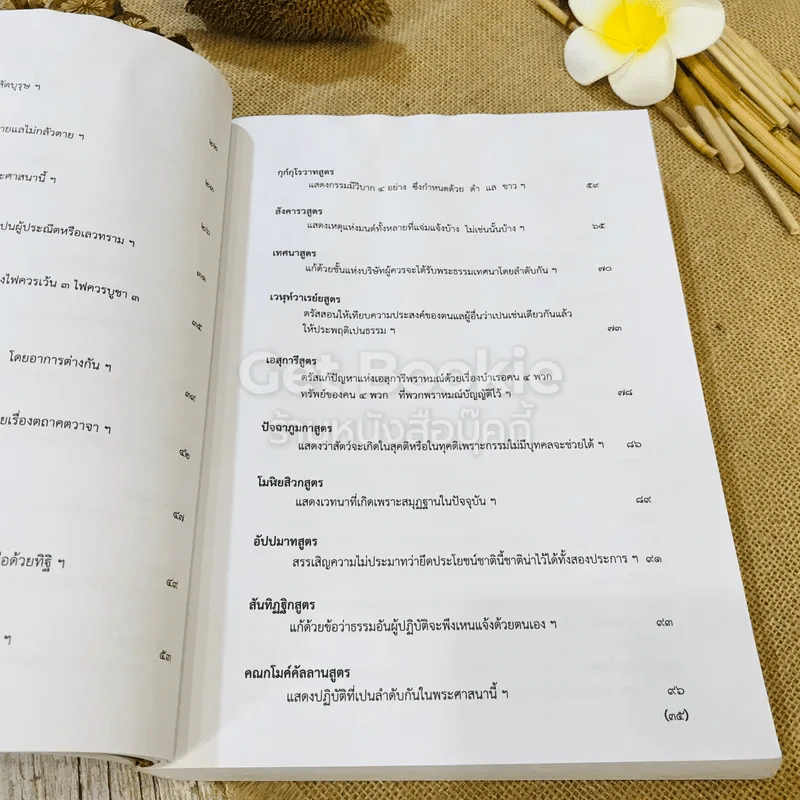 ายแลไม่กลัวตาย ฯ
๒๒
ะศาสนานี้ ฯ
๒๓
ปนผู้ประณีตหรือเลวทราม ฯ
๒๖
งไฟควรเว้น ๓ ไฟควรบูชา ๓
๓๑
๓๕
โดยอาการต่างกัน ฯ
๓๙
ยเรื่องตถาคตวาจา ฯ
๔๒
๔๗
ือด้วยทิฐิ ฯ
๔๙
ฯ
๕๓
กุก์กุโรวาทสูตร
แสดงกรรมมีวิบาก ๔ อย่าง ซึ่งกำหนดด้วย ดำ แล ขาว ฯ ๕๙
สังคารวสูตร
แสดงเหตุแห่งมนต์ทั้งหลายที่แจ่มแจ้งบ้าง ไม่เช่นนั้นบ้าง ฯ ๖๕
เทศนาสูตร
แก้ด้วยชั้นแห่งบริษัทผู้ควรจะได้รับพระธรรมเทศนาโดยลำดับกัน ฯ ๗๐
เวฬุท์วาเรย์ยสูตร
ตรัสสอนให้เทียบความประสงค์ของตนแลผู้อื่นว่าเปนเช่นเดียวกันแล้ว
ให้ประพฤติเปนธรรม ฯ ๗๓
เอสุการีสูตร
ตรัสแก้ปัญหาแห่งเอสุการีพราหมณ์ด้วยเรื่องบำเรอคน ๔ พวก
ทรัพย์ของคน ๔ พวก ที่พวกพราหมณ์บัญญัติไว้ ฯ ๗๘
ปัจฉาภูมกาสูตร
แสดงว่าสัตว์จะเกิดในสุคติหรือในทุคติเพราะกรรมไม่มีบุทคลจะช่วยได้ ฯ ๘๖
โมฬิยสิวกสูตร
แสดงเวทนาที่เกิดเพราะสมุฏฐานในปัจจุบัน ฯ ๘๙
อัปปมาทสูตร
สรรเสิญความไม่ประมาทว่ายึดประโยชน์ชาตินี้ชาติน่าไว้ได้ทั้งสองประการ ฯ ๙๑
สันทิฏฐิกสูตร
แก้ด้วยข้อว่าธรรมอันผู้ปฏิบัติจะพึงเหนแจ้งด้วยตนเอง ฯ ๙๓
คณกโมค์คัลลานสูตร
แสดงปฏิบัติที่เปนลำดับกันในพระศาสนานี้ ฯ ๙๖
(๓๕)
Get Bookie
ร้านหนังสือบุ๊คกี้